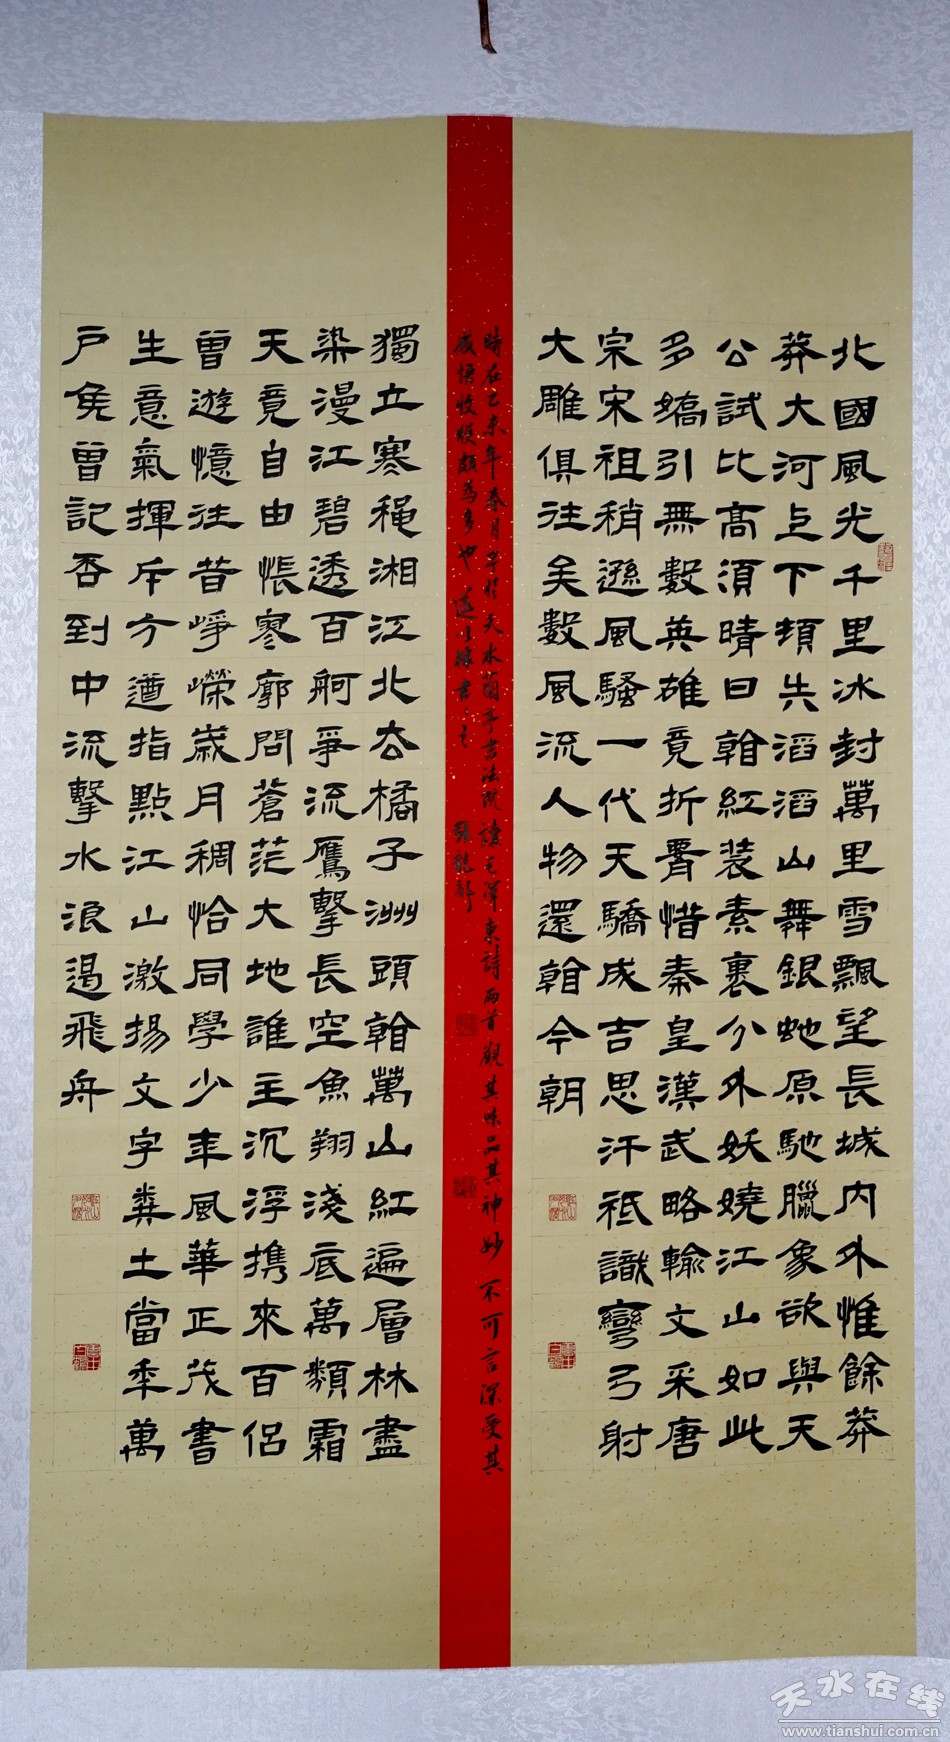 北國風光千里冰封萬里雪飄望長城內外惟餘莽
莽大河上下頓失滔滔山舞銀虵原馳臘象欲與天
公試比高須晴日看紅裝素裹分外妖嬈江山如此
多嬌引無數英雄竟折腰惜秦皇漢武略輸文采唐
宗宋祖稍遜風騷一代天驕成吉思汗祗識彎弓射
大雕俱往矣數風流人物還看今朝
時在乙未年春月於天水蘭亭書法院讀毛澤東詩兩首觀其味品其神妙不可言深受其
感悟收穫頗為多也遂以隸書之
獨立寒秋湘江北去橘子洲頭看萬山紅遍層林盡
染漫江碧透百舸爭流鷹擊長空魚翔淺底萬類霜
天竟自由悵寥廓問蒼茫大地誰主沉浮携來百侶
曾遊憶往昔崢嶸歲月稠恰同學少年風華正茂書
生意氣揮斥方遒指點江山激揚文字糞土當年萬
戶矦曾記否到中流擊水浪遏飛舟
天水在线
www.tianshui.com.cn